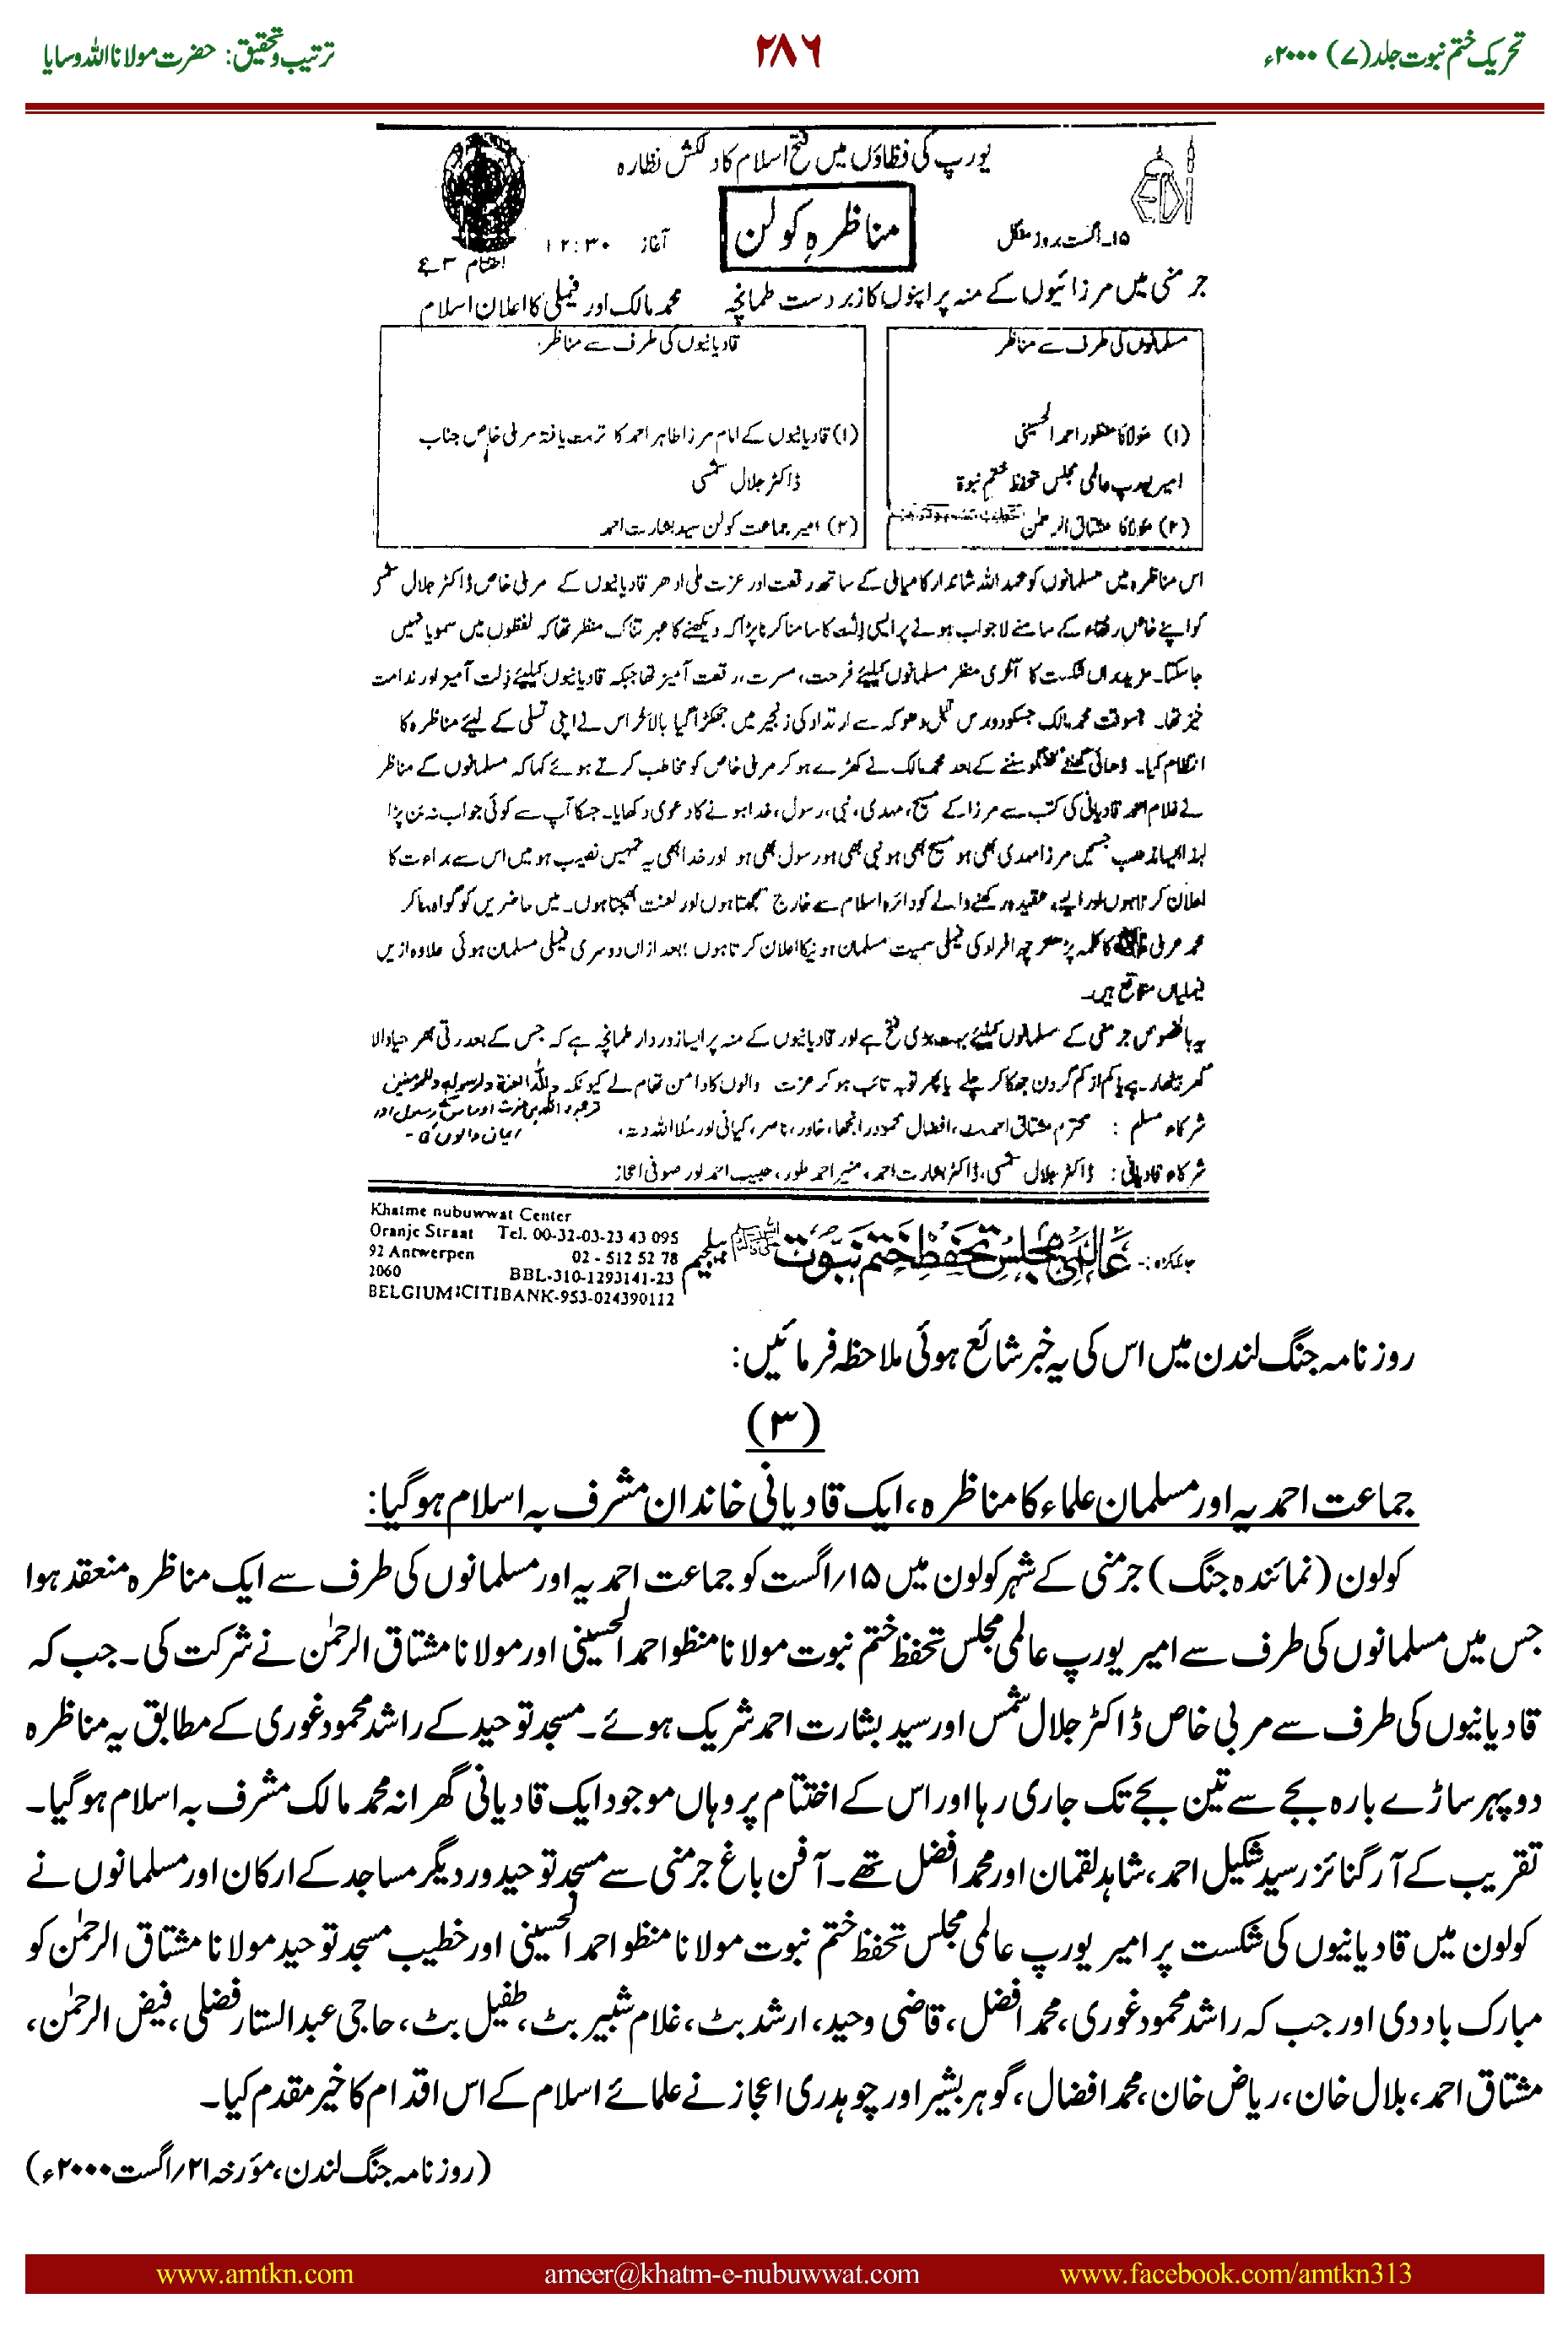 تحریک ختم نبوت جلد (۷) ۲۰۰۰ء
۲۸۶
ترتیب و تحقیق: حضرت مولانا اللہ وسایا
یورپ کی فضاؤں میں فتح اسلام کا دلکش نظارہ
۱۵۔اگست بروز منگل
مناظرہ کولن
آغاز ۱۲:۳۰
اختتام ۳ بجے
جرمنی میں مرزائیوں کے منہ پر اپنوں کا زبردست طمانچہ محمد مالک اور فیملی کا اعلان اسلام
مسلمانوں کی طرف سے مناظر
(۱) مولانا منظور احمد الحسینی
امیر یورپ عالمی مجلس تحفظ ختم نبوة
(۲) مولانا مشتاق الرحمٰن
قادیانیوں کی طرف سے مناظر:
(۱) قادیانیوں کے امام مرزا طاہر احمد کا تربیت یافتہ مربی خاص جناب
ڈاکٹر جلال شمسی
(۲) امیر جماعت کولن سید بشارت احمد
اس مناظرہ میں مسلمانوں کو بحمد اللہ شاندار کامیابی کے ساتھ رفعت اور عزت ملی ادھر قادیانیوں کے مربی خاص ڈاکٹر جلال شمسی
کو اپنے خاص رفقاء کے سامنے لاجواب ہونے پر ایسی ذلت کا سامنا کرنا پڑا کہ دیکھنے کا عبر تناک منظر تھا کہ لفظوں میں سمویا نہیں
جاسکتا۔ مزید براں شکست کا آخری منظر مسلمانوں کیلئے فرحت، مسرت، رفعت آمیز تھا جبکہ قادیانیوں کیلئے ذلت آمیز اور ندامت
خیز تھا۔ جسوقت محمد مالک جسکو دو برس قبل دھوکہ سے ارتداد کی زنجیر میں جھکڑا گیا بالآخر اس نے اپنی تسلی کے لیئے مناظرہ کا
انتظام کیا۔ ڈھائی گھنٹے گفتگو سننے کے بعد محمد مالک نے کھڑے ہو کر مربی خاص کو مخاطب کرتے ہوئے کہا کہ مسلمانوں کے مناظر
نے غلام احمد قادیانی کی کتب سے مرزا کے مسیح، مہدی، نبی، رسول، خدا ہونے کا دعوی دکھایا۔ جسکا آپ سے کوئی جواب نہ بن پڑا
لہذا ایسا مذھب جسمیں مرزا مہدی بھی ہو مسیح بھی ہو نبی بھی ہو رسول بھی ہو اور خدا بھی یہ تمہیں نصیب ہو میں اس سے براءت کا
اعلان کرتا ہوں اور ایسے عقیدہ رکھنے والے کو دائرہ اسلام سے خارج سمجھتا ہوں اور لعنت بھیجتا ہوں۔ میں حاضریں کو گواہ بنا کر
محمد عربی کا کلمہ پڑھ کر چھ افراد کی فیملی سمیت مسلمان ہونیکا اعلان کرتا ہوں ؛ بعد ازاں دوسری فیملی مسلمان ہوئی علاوہ ازیں
فیملیاں متوقع ہیں۔
یہ بالخصوص جرمنی کے مسلمانوں کیلئے بہت بڑی فتح ہے اور قادیانیوں کے منہ پر ایسا زوردار طمانچہ ہے کہ جس کے بعد رتی بھر حیا والا
گھر بیٹھا رہے یا کم از کم گردن جھکا کر چلے یا پھر توبہ تائب ہو کر عزت والوں کا دامن تھام لے کیونکہ وللہ العزة ولرسولہ وللمؤمنین
شرکاء مسلم : محترم مشتاق احمد بٹ، افضال محمود رانجھا، خاور، ناصر، کیانی اور اللہ دتہ،
ایمان والوں کی۔
شرکاء قادیانی : ڈاکٹر جلال شمسی، ڈاکٹر بشارت احمد، منیر احمد طور، حبیب احمد اور صوفی اعجاز
جاریکردہ :- عالمی مجلس تحفظ ختم نبوت بیلجیم
Khatme nubuwwat Center
Oranje Straat Tel. 00-32-03-23 43 095
92 Antwerpen 02 - 512 52 78
2060 BBL-310-1293141-23
BELGIUM:CITIBANK-953-024390112
روز نامہ جنگ لندن میں اس کی یہ خبر شائع ہوئی ملاحظہ فرمائیں:
(۳)
جماعت احمدیہ اور مسلمان علماء کا مناظرہ، ایک قادیانی خاندان مشرف بہ اسلام ہوگیا:
کولون (نمائندہ جنگ) جرمنی کے شہر کولون میں ۱۵؍اگست کو جماعت احمدیہ اور مسلمانوں کی طرف سے ایک مناظرہ منعقد ہوا
جس میں مسلمانوں کی طرف سے امیر یورپ عالمی مجلس تحفظ ختم نبوت مولانا منظو احمد الحسینی اور مولانا مشتاق الرحمٰن نے شرکت کی۔ جب کہ
قادیانیوں کی طرف سے مربی خاص ڈاکٹر جلال شمس اور سید بشارت احمد شریک ہوئے۔ مسجد توحید کے راشد محمود غوری کے مطابق یہ مناظرہ
دوپہر ساڑے بارہ بجے سے تین بجے تک جاری رہا اور اس کے اختتام پر وہاں موجود ایک قادیانی گھرانہ محمد مالک مشرف بہ اسلام ہوگیا۔
تقریب کے آرگنائزر سید شکیل احمد، شاہد لقمان اور محمد افضل تھے۔ آفن باغ جرمنی سے مسجد توحید ور دیگر مساجد کے ارکان اور مسلمانوں نے
کولون میں قادیانیوں کی شکست پر امیر یورپ عالمی مجلس تحفظ ختم نبوت مولانا منظو احمد الحسینی اور خطیب مسجد توحید مولانا مشتاق الرحمٰن کو
مبارک باد دی اور جب کہ راشد محمود غوری، محمد افضل، قاضی وحید، ارشد بٹ، غلام شبیر بٹ، طفیل بٹ، حاجی عبدالستار فضلی، فیض الرحمٰن،
مشتاق احمد، بلال خان، ریاض خان، محمد افضال، گوہر بشیر اور چوہدری اعجاز نے علمائے اسلام کے اس اقدام کا خیر مقدم کیا۔
(روز نامہ جنگ لندن، مؤرخہ ۲۱؍اگست ۲۰۰۰ء)
www.amtkn.com ameer@khatm-e-nubuwwat.com www.facebook.com/amtkn313